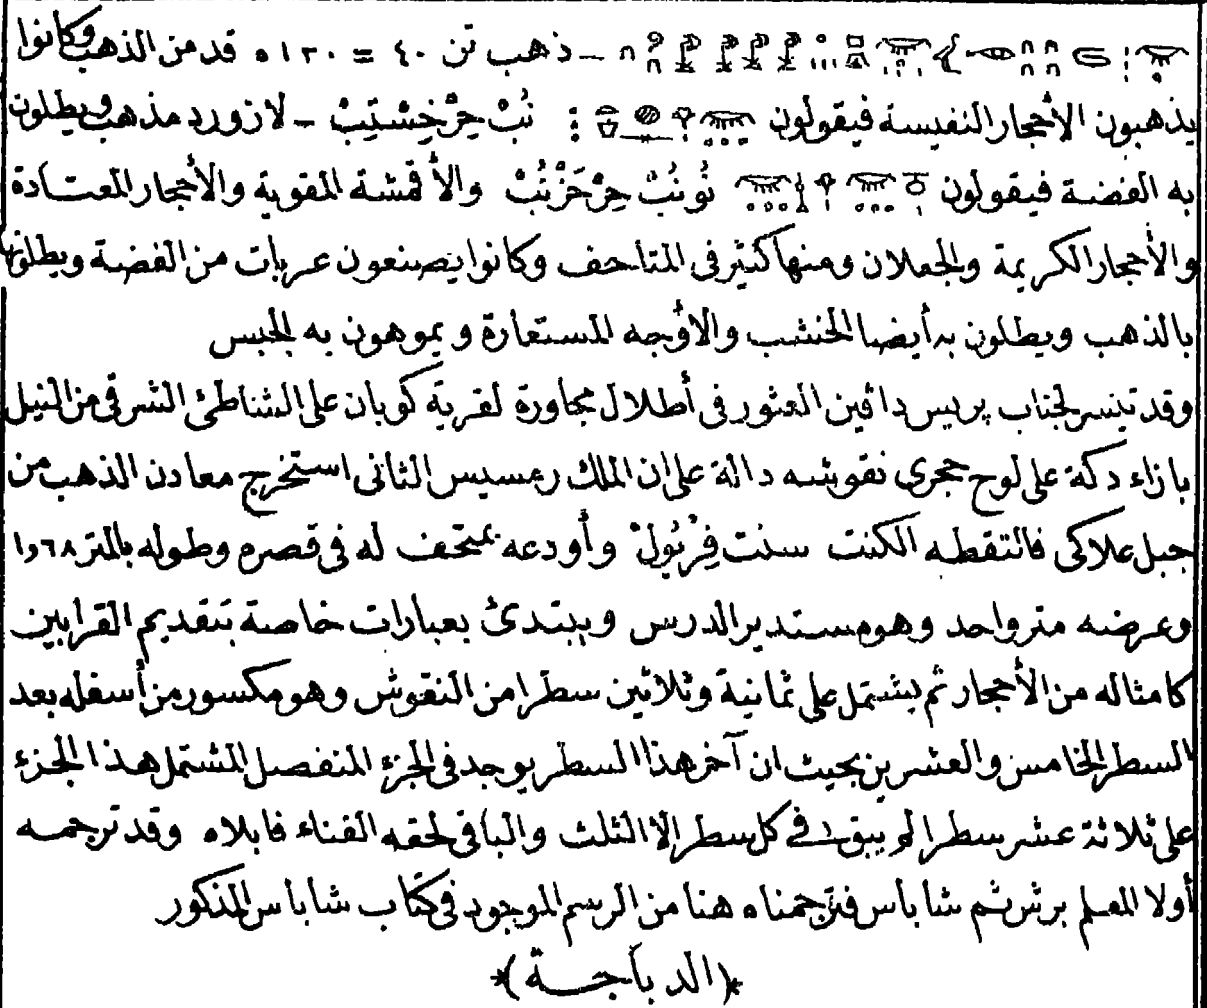 ذهب تن ٤٠ = ٥١٢٠ قد من الذهب وكانوا
يذهبون الأحجار النفيسة فيقولون نُبْ حِرْخِسْتِبْ ـ لازورد مذهب ويطلون
به الفضة فيقولون نُونُبْ حِرْحَزْنُبْ والأقمشة المقوية والأحجار المعتادة
والأحجار الكريمة والجعلان ومنها كثير في المتاحف وكانوا يصنعون عربات من الفضة ويطلونها
بالذهب ويطلون به أيضا الخشب والاوجه المستعارة ويموهون به الجبس
وقد تيسر لجناب پريس دافين العثور في أطلال مجاورة لقرية كوبان على الشاطئ الشرقى من النيل
بازاء دكة على لوح حجرى نقوشه دالة على ان الملك رمسيس الثانى استخرج معادن الذهب من
جبل علاكى فالتقطه الكنت سنت فِرْيُولْ وأودعه بمتحف له فى قصره وطوله بالمتر ١٫٦٨
وعرضه متر واحد وهو مستدير الدرس ويبتدئ بعبارات خاصة بتقديم القرابين
كامثاله من الأحجار ثم يشتمل على ثمانية وثلاثين سطرا من النقوش وهو مكسور من أسفله بعد
السطر الخامس والعشرين بحيث ان آخر هذا السطر يوجد فى الجزء المنفصل المشتمل هذا الجزء
على ثلاثة عشر سطرا لم يبق في كل سطر الا الثلث والباقى لحقه الفناء فابلاه وقد ترجمه
أولا المعلم برش ثم شاباس فترجمناه هنا من الرسم الموجود فى كتاب شاباس المذكور
*(الدباجــة)*